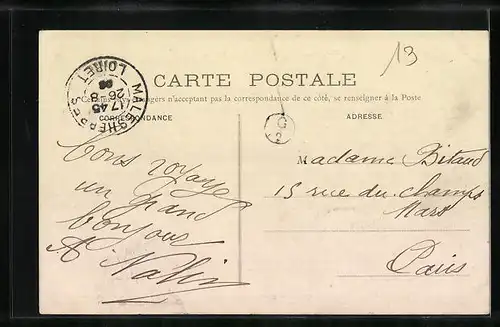 13
MALESHERBES
LOIRET
17 45
26-8
08
CARTE POSTALE
pays étrangers n'acceptent pas la correspondance de ce côté, se renseigner à la Poste
CORRESPONDANCE
ADRESSE
G
2
Madame Bitaud
15 rue du champs
Mars
Paris
bons voyages
un grand
bonjour
A